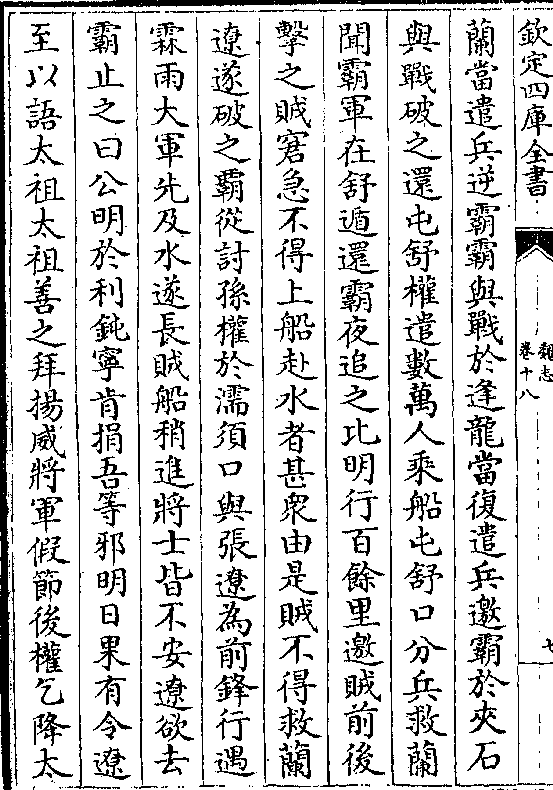 欽定四庫全書
魏志
卷十八
七
蘭當遣兵逆霸霸與戰於逢龍當復遣兵邀霸於夾石
與戰破之還屯舒權遣數萬人乘船屯舒口分兵救蘭
聞霸軍在舒遁還霸夜追之比明行百餘里邀賊前後
擊之賊窘急不得上船赴水者甚衆由是賊不得救蘭
遼遂破之霸從討孫權於濡須口與張遼為前鋒行遇
霖雨大軍先及水遂長賊船稍進將士皆不安遼欲去
霸止之曰公明於利鈍寧肯捐吾等邪明日果有令遼
至以語太祖太祖善之拜揚威將軍假節後權乞降太